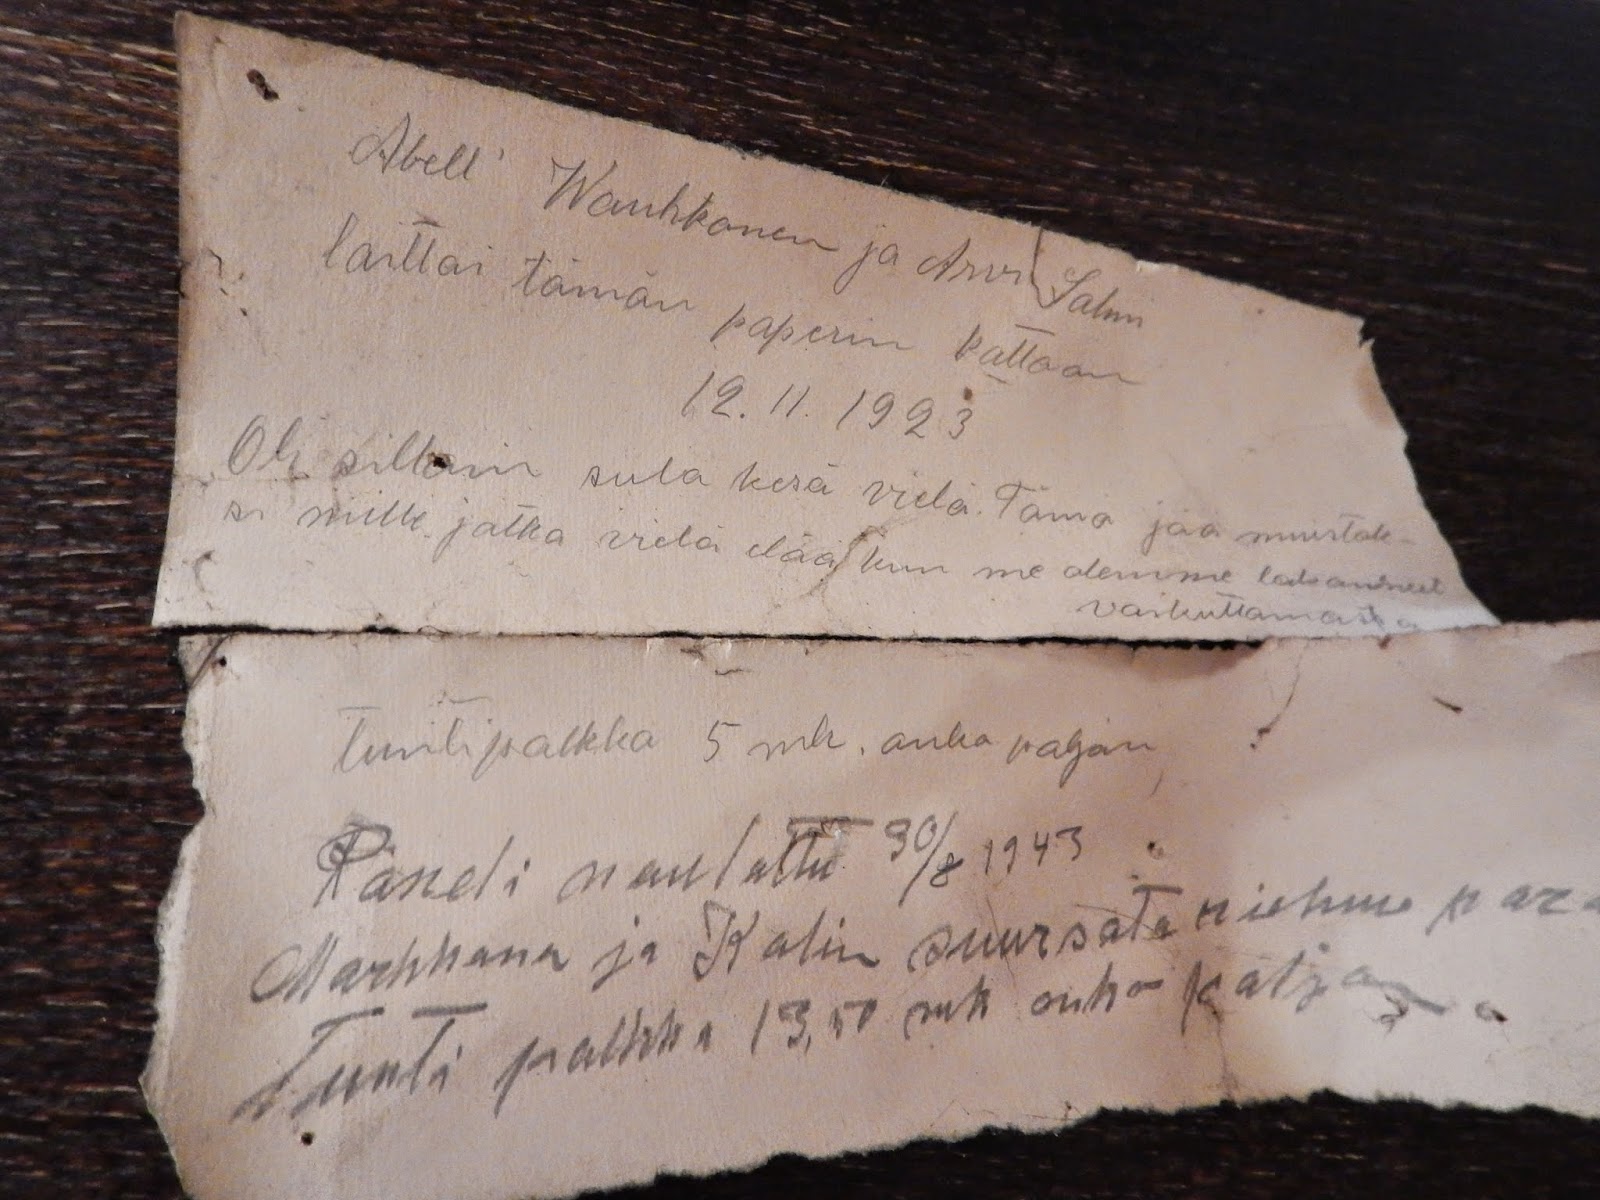 Abell Wauhkonen ja Arvi Salmi
laittai tämän paperin kattoon
12.11.1923
Oli silloin sula kesä vielä. Tämä jää muistok-
si mille jotka vielä elää kun me olemme lakanneet
vaikuttamasta
Tuntipalkka 5 mk. onko paljon
Paneli naulattu 30/8 1943
Markkana ja Kalin suursata miehine para
Tunti palkka 13,50 mk onko paljo